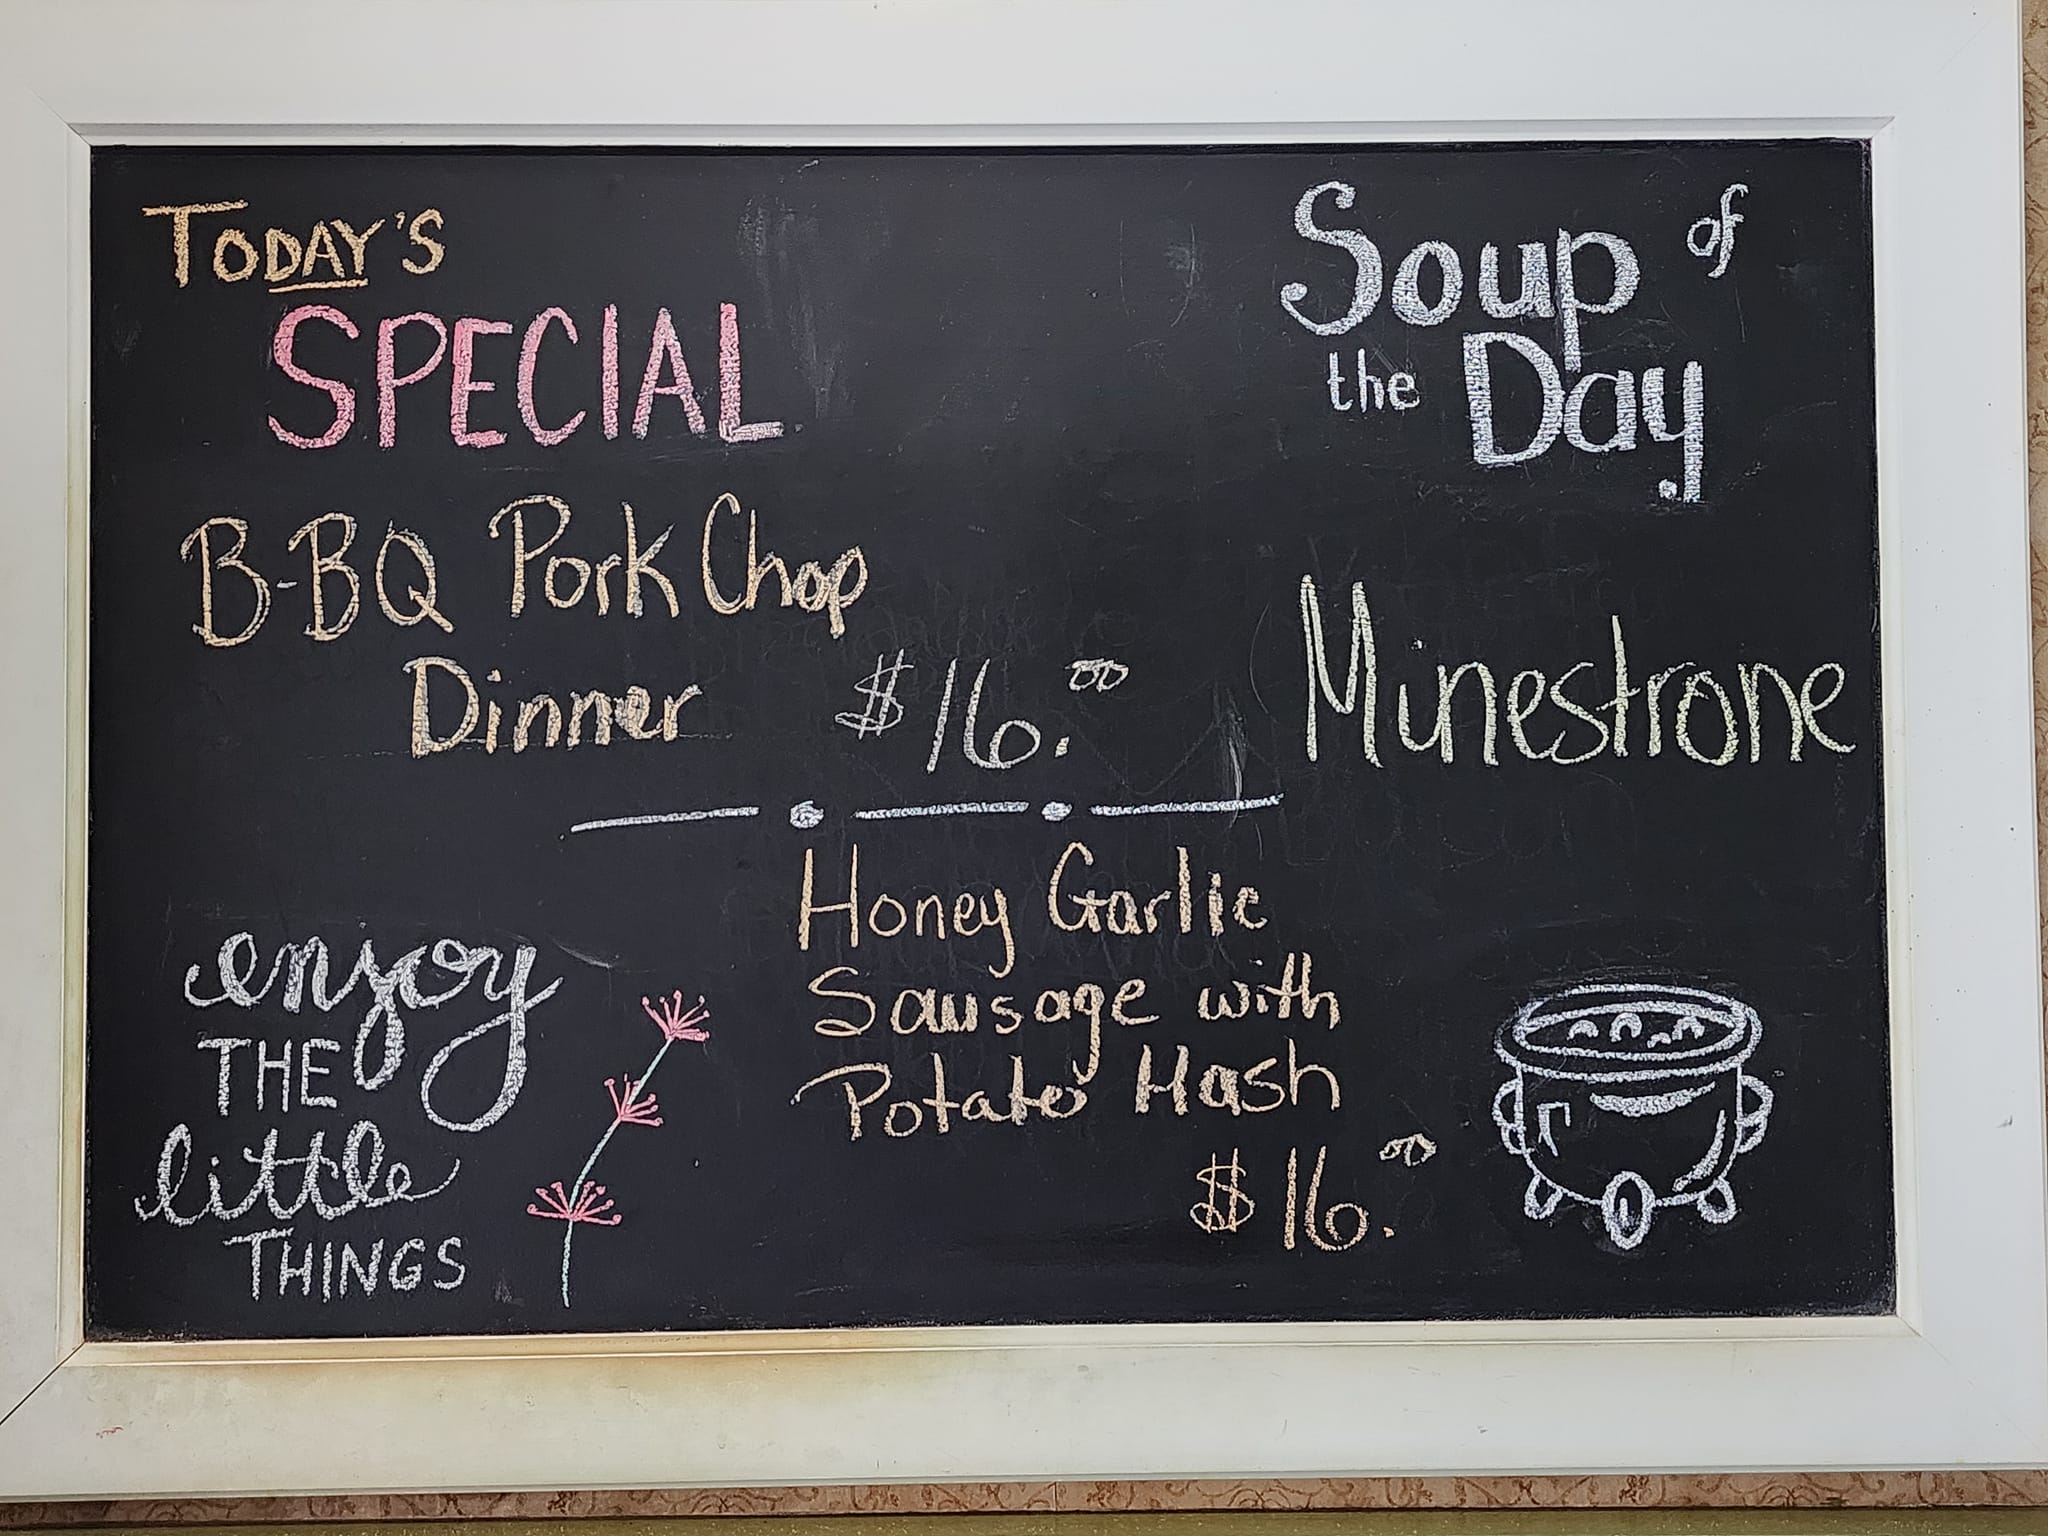 TODAY'S
SPECIAL
B-BQ Pork Chop
Dinner $16.00
Honey Garlic
Sausage with
Potato Hash
$16.00
Soup of
the Day
Minestrone
enjoy
THE
little
THINGS